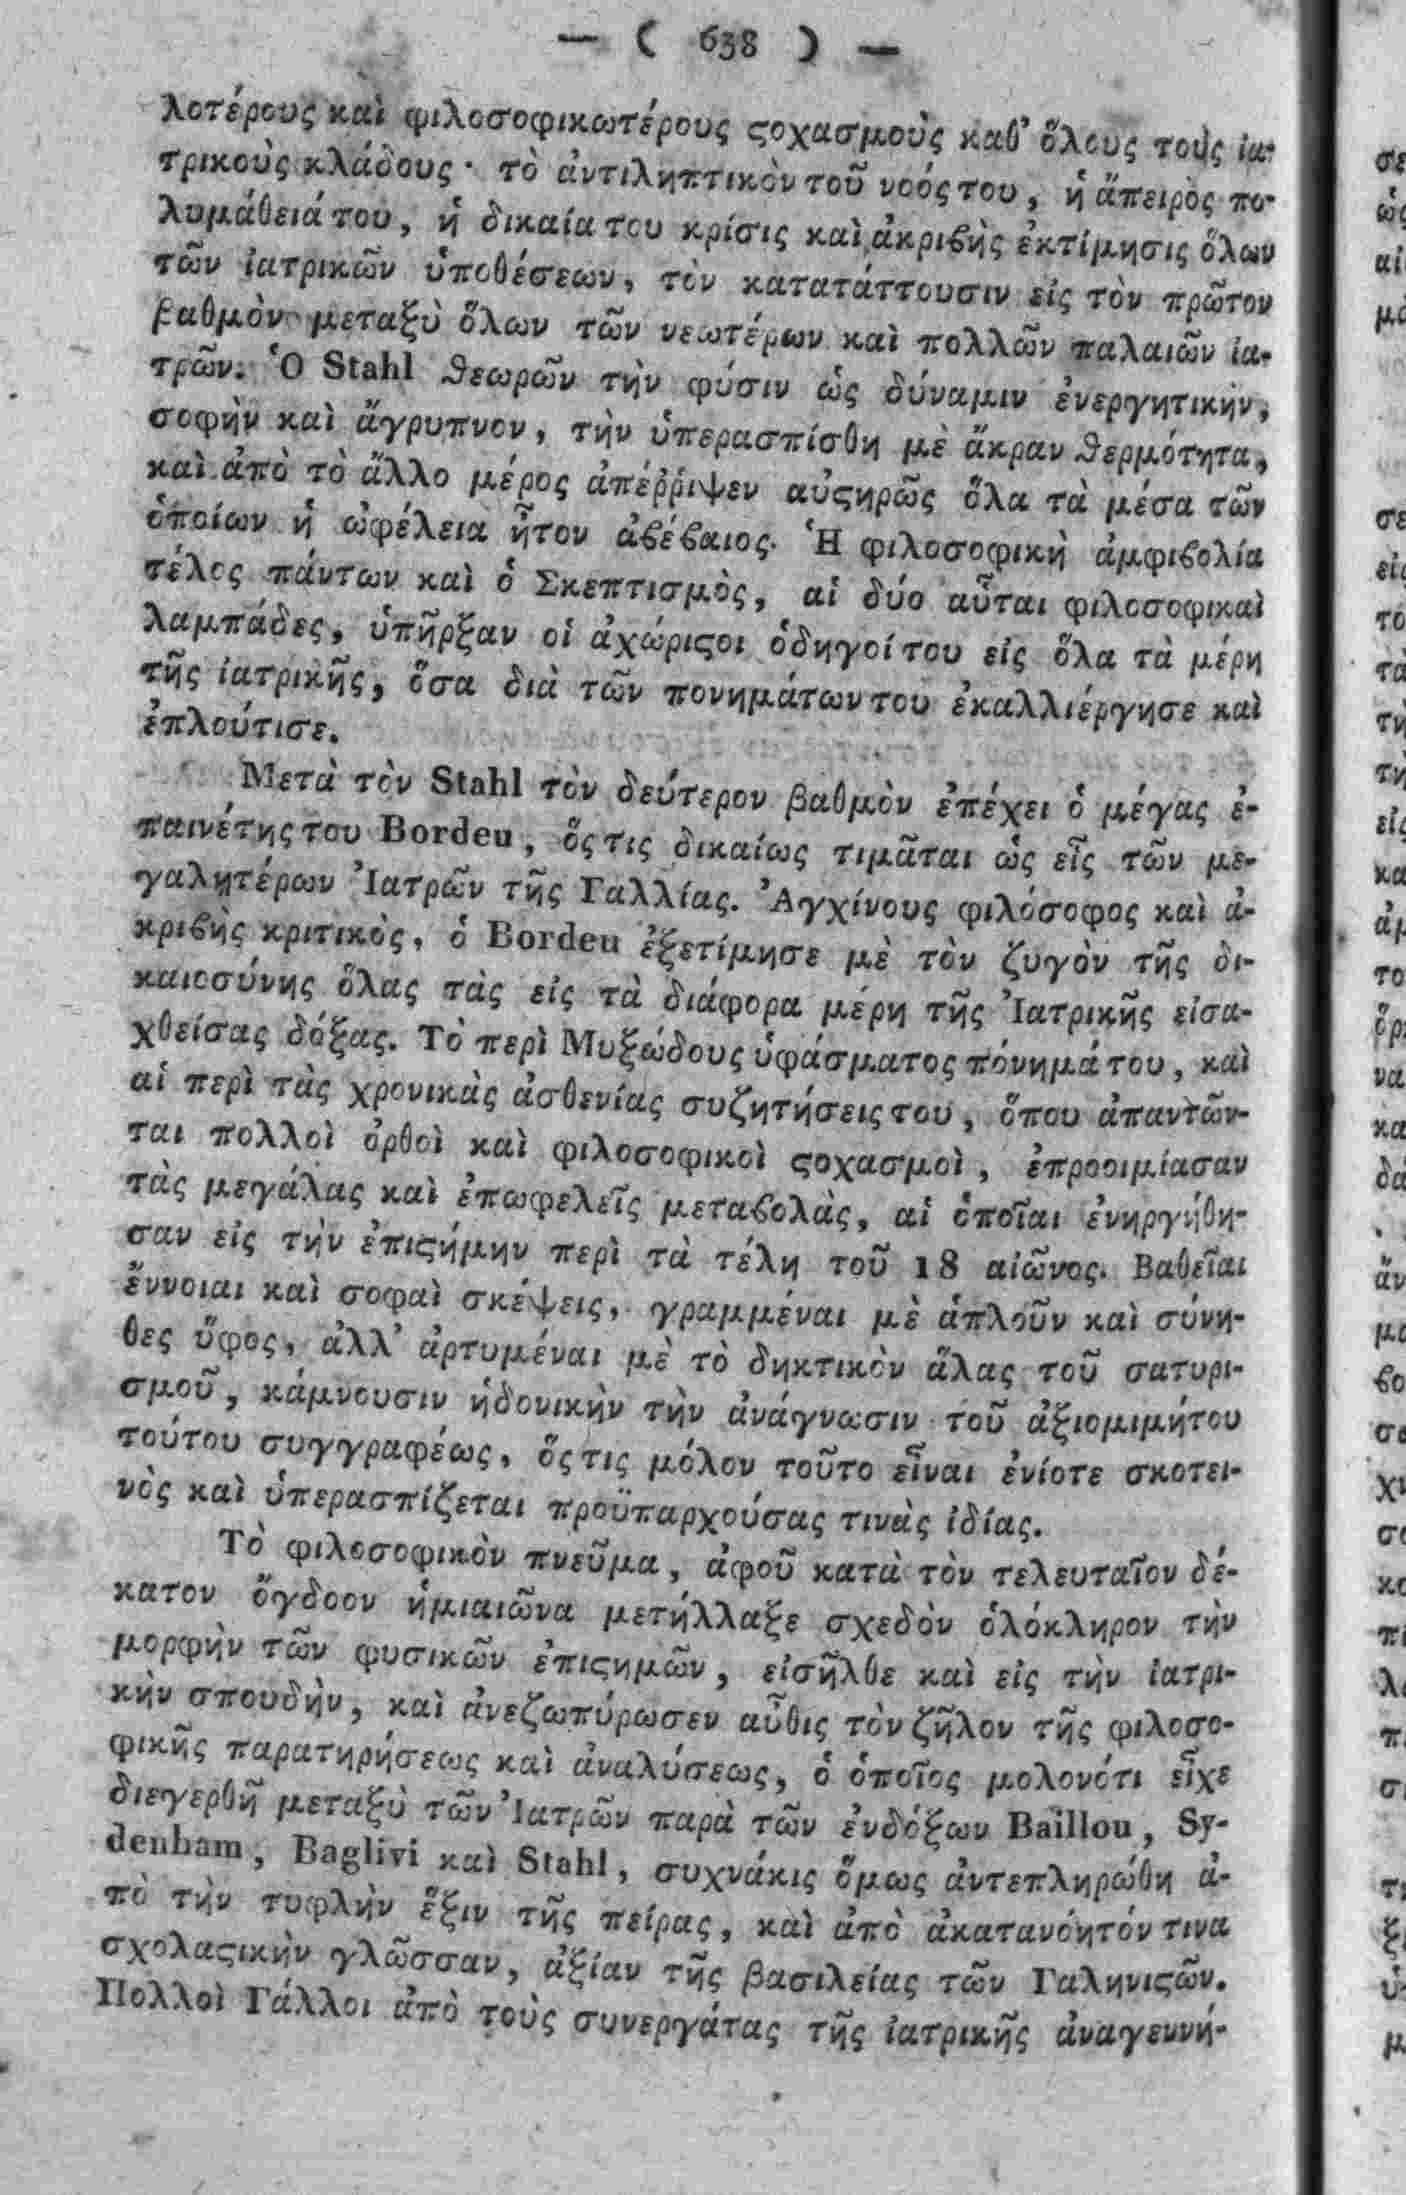 — ( 638 ) —
λοτέρους καὶ φιλοσοφικωτέρους ϛοχασμοὺς καθ' ὅλους τοὺς ἰα-
τρικοὺς κλάδους· τὸ ἀντιληπτικὸν τοῦ νοός του, ἡ ἄπειρὸς πο-
λυμάθειά του, ἡ δικαία του κρίσις καὶ ἀκριϐὴς ἐκτίμησις ὅλων
τῶν ἰατρικῶν ὑποθέσεων, τὸν κατατάττουσιν εἰς τὸν πρῶτον
βαθμὸν μεταξὺ ὅλων τῶν νεωτέρων καὶ πολλῶν παλαιῶν ἰα-
τρῶν. Ὁ Stahl θεωρῶν τὴν φύσιν ὡς δύναμιν ἐνεργητικὴν,
σοφὴν καὶ ἄγρυπνον, τὴν ὑπερασπίσθη μὲ ἄκραν θερμότητα,
καὶ ἀπὸ τὸ ἄλλο μέρος ἀπέῤῥιψεν αὐϛηρῶς ὅλα τὰ μέσα τῶν
ὁποίων ἡ ὠφέλεια ἦτον ἀϐέϐαιος. Ἡ φιλοσοφικὴ ἀμφιϐολία
τέλος πάντων καὶ ὁ Σκεπτισμὸς, αἱ δύο αὗται φιλοσοφικαὶ
λαμπάδες, ὑπῆρξαν οἱ ἀχώριϛοι ὁδηγοί του εἰς ὅλα τὰ μέρη
τῆς ἰατρικῆς, ὅσα διὰ τῶν πονημάτων του ἐκαλλιέργησε καὶ
ἐπλούτισε.
Μετὰ τὸν Stahl τὸν δεύτερον βαθμὸν ἐπέχει ὁ μέγας ἐ-
παινέτης του Bordeu, ὅς τις δικαίως τιμᾶται ὡς εἷς τῶν με-
γαλητέρων Ἰατρῶν τῆς Γαλλίας. Ἀγχίνους φιλόσοφος καὶ ἀ-
κριϐὴς κριτικὸς, ὁ Bordeu ἐξετίμησε μὲ τὸν ζυγὸν τῆς δι-
καιοσύνης ὅλας τὰς εἰς τὰ διάφορα μέρη τῆς Ἰατρικῆς εἰσα-
χθείσας δόξας. Τὸ περὶ Μυξώδους ὑφάσματος πόνημά του, καὶ
αἱ περὶ τὰς χρονικὰς ἀσθενίας συζητήσεις του, ὅπου ἀπαντῶν-
ται πολλοὶ ὀρθοὶ καὶ φιλοσοφικοὶ ϛοχασμοὶ, ἐπροοιμίασαν
τὰς μεγάλας καὶ ἐπωφελεῖς μεταϐολὰς, αἱ ὁποῖαι ἐνηργήθη-
σαν εἰς τὴν ἐπιϛήμην περὶ τὰ τέλη τοῦ 18 αἰῶνος. Βαθεῖαι
ἔννοιαι καὶ σοφαὶ σκέψεις, γραμμέναι μὲ ἁπλοῦν καὶ σύνη-
θες ὕφος, ἀλλ' ἀρτυμέναι μὲ τὸ δηκτικὸν ἅλας τοῦ σατυρι-
σμοῦ, κάμνουσιν ἡδονικὴν τὴν ἀνάγνωσιν τοῦ ἀξιομιμήτου
τούτου συγγραφέως, ὅς τις μόλον τοῦτο εἶναι ἐνίοτε σκοτει-
νὸς καὶ ὑπερασπίζεται προϋπαρχούσας τινὰς ἰδίας.
Τὸ φιλοσοφικὸν πνεῦμα, ἀφοῦ κατὰ τὸν τελευταῖον δέ-
κατον ὄγδοον ἡμιαιῶνα μετήλλαξε σχεδὸν ὁλόκληρον τὴν
μορφὴν τῶν φυσικῶν ἐπιϛημῶν, εἰσῆλθε καὶ εἰς τὴν ἰατρι-
κὴν σπουδὴν, καὶ ἀνεζωπύρωσεν αὖθις τὸν ζῆλον τῆς φιλοσο-
φικῆς παρατηρήσεως καὶ ἀναλύσεως, ὁ ὁποῖος μολονότι εἶχε
διεγερθῆ μεταξὺ τῶν Ἰατρῶν παρὰ τῶν ἐνδόξων Baillou, Sy-
denham, Baglivi καὶ Stahl, συχνάκις ὅμως ἀντεπληρώθη ἀ-
πὸ τὴν τυφλὴν ἕξιν τῆς πείρας, καὶ ἀπὸ ἀκατανόητόν τινα
σχολαϛικὴν γλῶσσαν, ἀξίαν τῆς βασιλείας τῶν Γαληνιϛῶν.
Πολλοὶ Γάλλοι ἀπὸ τοὺς συνεργάτας τῆς ἰατρικῆς ἀναγεννή-